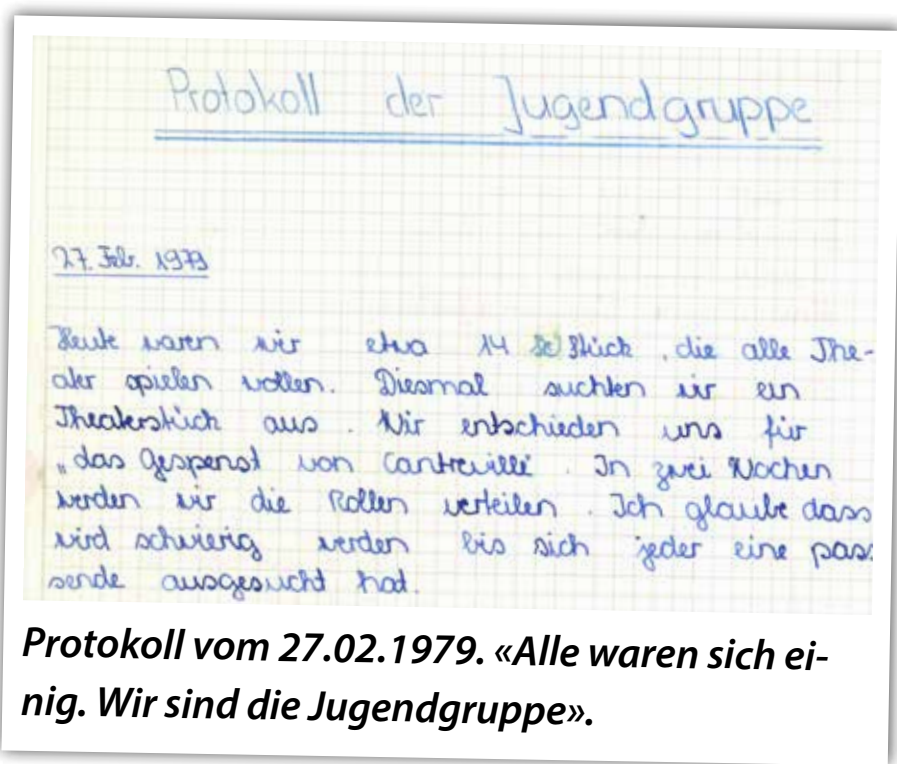 Protokoll der Jugendgruppe
27. Feb. 1979
Heute waren wir etwa 14 Stück, die alle The-
ater spielen wollen. Diesmal suchten wir ein
Theaterstück aus. Wir entschieden uns für
„das Gespenst von Canterville. In zwei Wochen
werden wir die Rollen verteilen. Ich glaube dass
wird schwierig werden bis sich jeder eine pas-
sende ausgesucht hat.
Protokoll vom 27.02.1979. «Alle waren sich ei-
nig. Wir sind die Jugendgruppe».